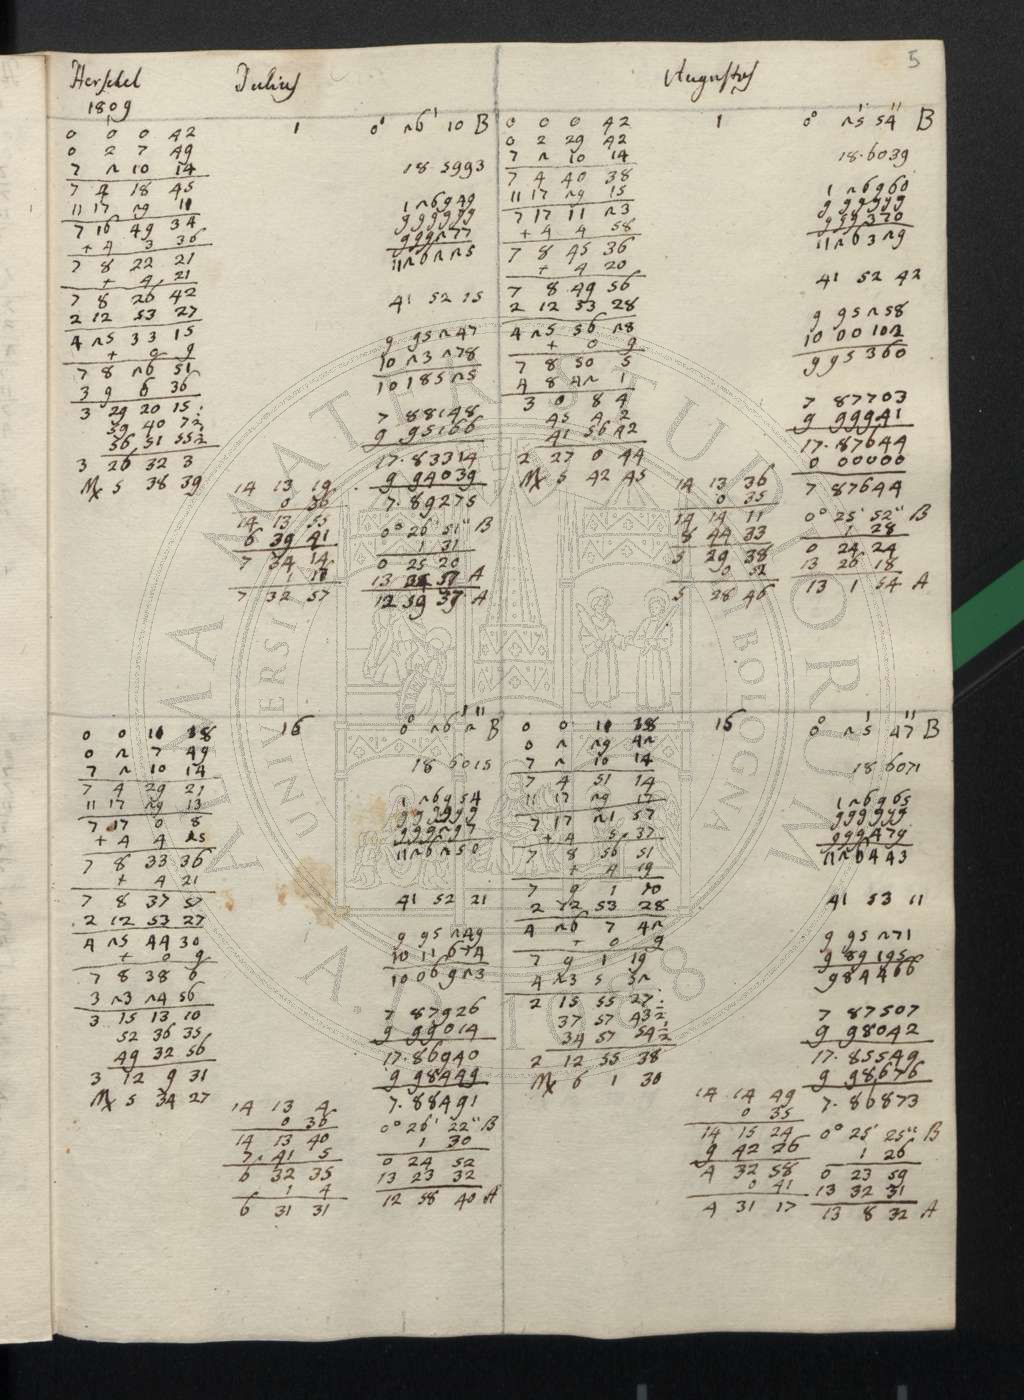 5
Herschel Julius
1809
0 0 0 42
0 2 7 49
7 2 10 14
7 4 18 45
11 17 29 10
7 16 49 34
+ 4 3 36
7 8 22 21
+ 4 21
7 8 26 42
2 12 53 27
4 25 33 15
+ 0 9
7 8 26 51
3 9 6 36
3 29 20 15
59 40 7½
56 51 55½
3 26 32 3
♍ 5 38 39
1
14 13 19
0 36
14 13 55
6 39 41
7 34 14
1 17
7 32 57
0° 26' 10 B
18.5993
1 26949
999999
999277
11 26225
41 52 15
9 95247
10 23278
10 18525
7 88148
9 95166
17.83314
9 94039
7.89275
0° 26' 51" B
1 31
0 25 20
13 57 A
12 59 37 A
Augustus
0 0 0 42
0 2 29 42
7 2 10 14
7 4 40 38
11 17 29 15
7 17 11 23
+ 4 4 58
7 8 45 36
+ 4 20
7 8 49 56
2 12 53 28
4 25 56 28
+ 0 9
7 8 50 5
4 8 42 1
3 0 8 4
45 4 2
41 56 42
2 27 0 44
♍ 5 42 45
1
14 13 36
0 35
14 14 11
8 44 33
5 29 38
0 52
5 28 46
0° 25' 54" B
18.6039
1 26960
999999
999370
11 26329
41 52 42
9 95258
10 00102
9 95360
7 87703
9 99941
17.87644
0 00000
7 87644
0° 25' 52" B
1 28
0 24 24
13 26 18
13 1 54 A
0 0 10 38
0 2 7 49
7 2 10 14
7 4 29 21
11 17 29 13
7 17 0 8
+ 4 4 25
7 8 33 36
+ 4 21
7 8 37 57
2 12 53 27
4 25 44 30
+ 0 9
7 8 38 6
3 23 24 56
3 15 13 10
52 36 35
49 32 56
3 12 9 31
♍ 5 34 27
16
14 13 4
0 36
14 13 40
7 41 5
6 32 35
1 4
6 31 31
0° 26' 2" B
18 6015
1 26954
999999
999297
11 26250
41 52 21
9 95249
10 11674
10 06923
7 87926
9 99014
17.86940
9 98449
7.88491
0° 26' 22" B
1 30
0 24 52
13 23 32
12 58 40 A
0 0 10 38
0 2 29 42
7 2 10 14
7 4 51 14
11 17 29 17
7 17 21 57
+ 4 5 37
7 8 56 51
+ 4 19
7 9 1 10
2 12 53 28
4 26 7 42
+ 0 9
7 9 1 19
4 23 5 52
2 15 55 27
37 57 43½
34 57 54½
2 12 55 38
♍ 6 1 30
16
14 14 49
0 35
14 15 24
9 42 26
4 32 58
0 41
4 31 17
0° 25' 47" B
18 6071
1 26965
999999
999479
11 26443
41 53 11
9 95271
9 89195
9 84466
7 87507
9 98042
17.85549
9 98676
7.86873
0° 25' 25" B
1 26
0 23 59
13 32 31
13 8 32 A
ALMA MATER STUDIORUM
UNIVERSITÀ DI BOLOGNA
A.D. 1088